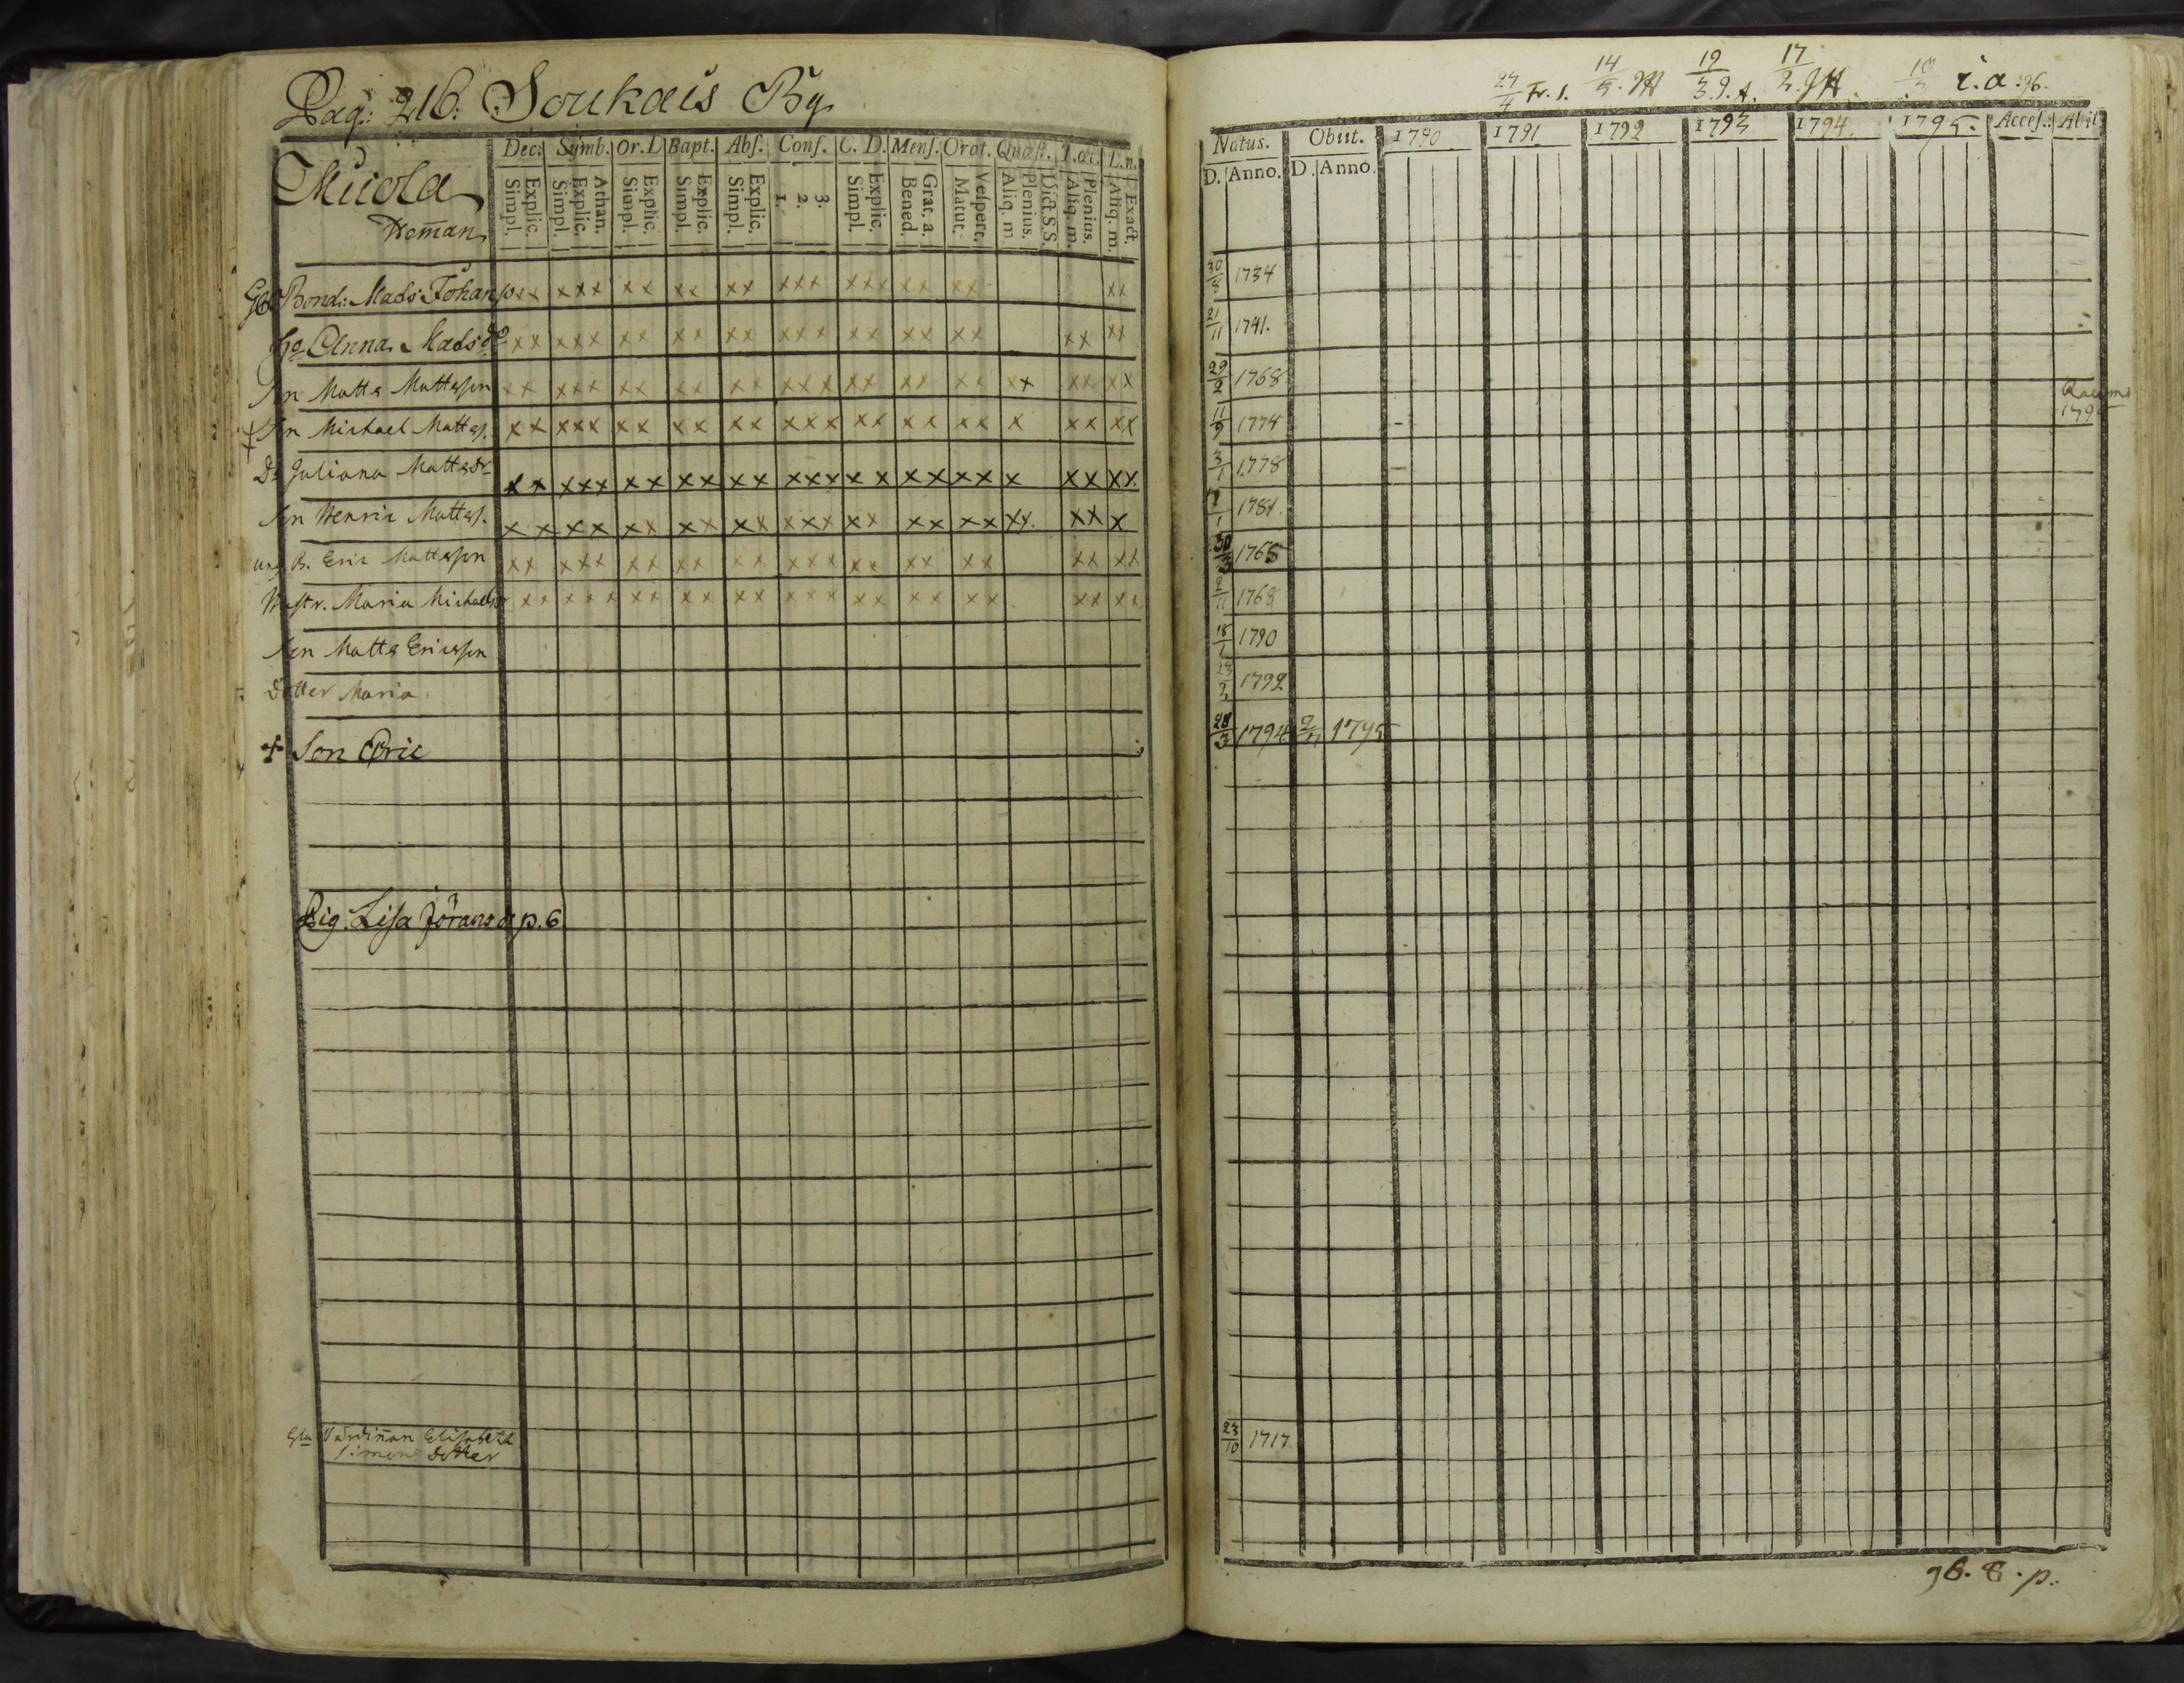 Pag: 216. Soukais By
Muola
Heman
Dec. Symb. Or. D Bapt. Abſ. Conf. C. D. Menſ. Orat. Quæſt. T. æt. L. n.
Explic. Simpl. Athan. Explic. Simpl. Explic. Simpl. Explic. Simpl. Explic. Simpl. 3. 2. 1. Explic. Simpl. Grat. a. Bened. Veſpert. Matut. Dict. S.S. Plenius. Aliq. m. Plenius. Aliq. m. Exact. Aliq. m.
Bond: Mads Johanss xx xxx xx xx xx xxx xxx xx xx xx
Anna Mads dr xx xxx xx xx xx xxx xx xx xx xx xx
Sn Matts Mattsson xx xxx xx xx xx xxx xx xx xx xx xx xx
Sn Michael Matts. xx xxx xx xx xx xxx xx xx xx x xx xx
Dr Juliana Matts dr xx xxx xx xx xx xxx xx xx xx x xx xx
Sn Henric Matts. xx xx xx xx xx xxx xx xx xx xx. xx x
B. Eric Mattsson xx xxx xx xx xx xxx xx xx xx xx xx
Hustr. Maria Michaels xx xxx xx xx xx xxx xx xx xx xx xx
Son Matts Ericsson
Dotter Maria
+ Son Eric
Pig. Lisa Jörans dr p. 6
Elisabeth
Simons Dotter
27/4 Fr. s. 14/3 19/3 17/2 10/3 i. a. 96.
Natus. Obiit. 1790 1791 1792 1793 1794. 1795. Acceſ.: Abiit
D. Anno. D. Anno.
1734
21/11 1741.
29/2 1768
11/9 1774 1795
3/1 1778
1781.
30/3 1765
2/11 1768
18/1 1790
23/2 1792
28/3 1794 1795
23/10 1717
96. 8. p.